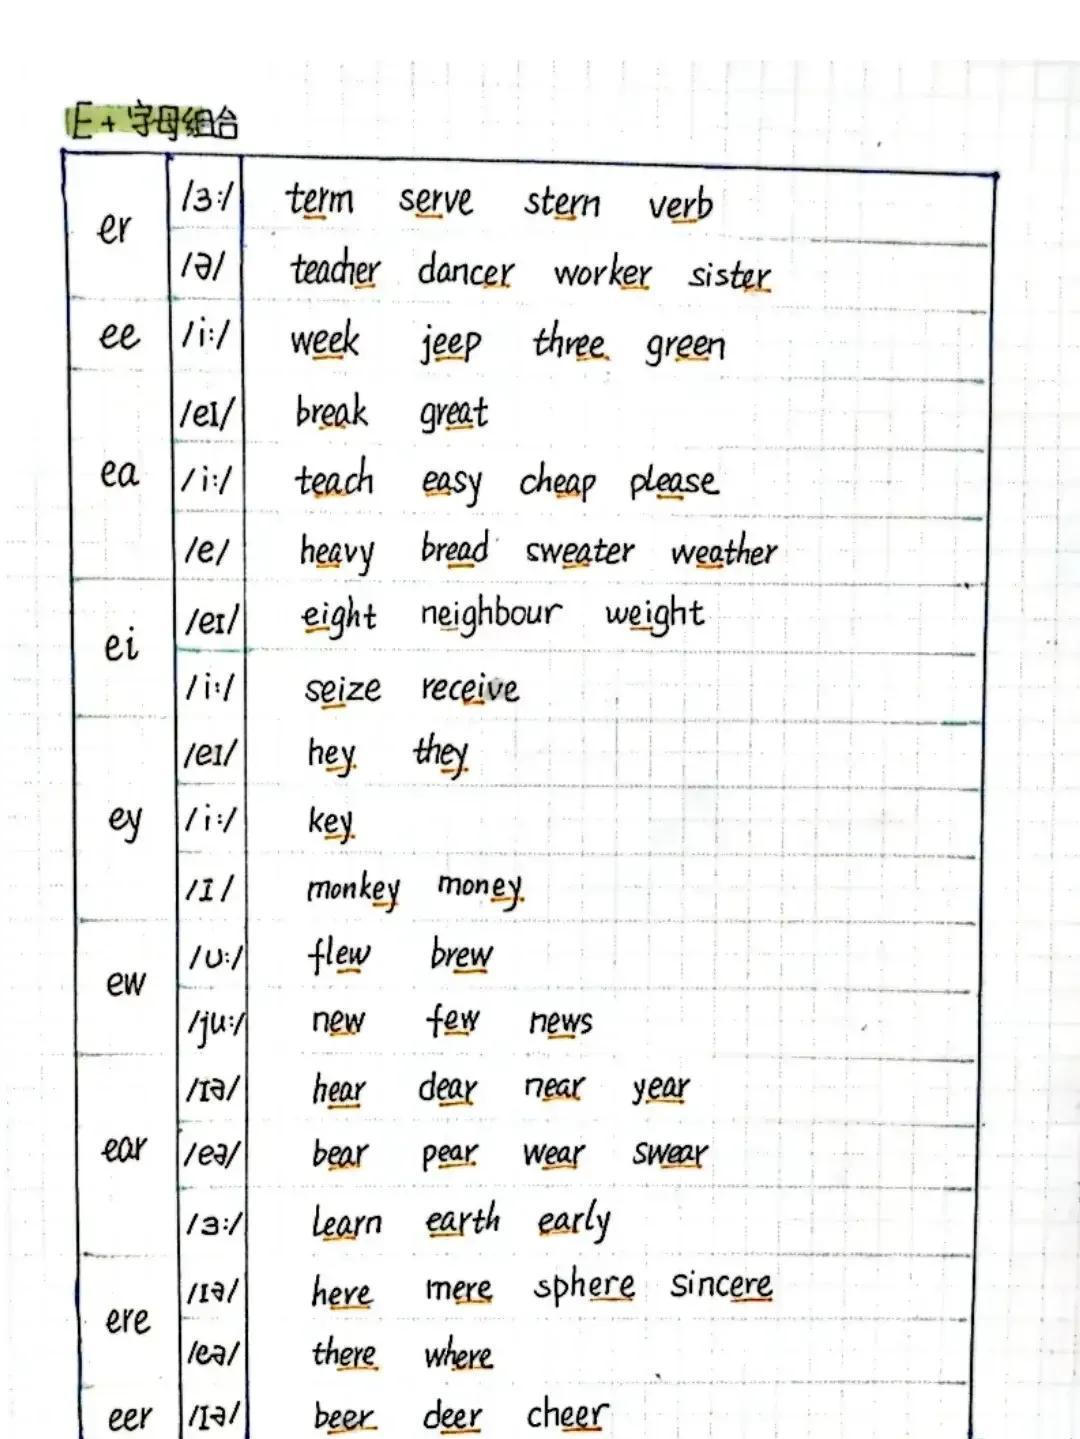 E+字母组合
er /ɜ:/ term serve stern verb
/ə/ teacher dancer worker sister
ee /i:/ week jeep three green
/eɪ/ break great
ea /i:/ teach easy cheap please
/e/ heavy bread sweater weather
ei /eɪ/ eight neighbour weight
/i:/ seize receive
/eɪ/ hey they
ey /i:/ key
/ɪ/ monkey money
ew /u:/ flew brew
/ju:/ new few news
/ɪə/ hear dear near year
ear /eə/ bear pear wear swear
/ɜ:/ learn earth early
ere /ɪə/ here mere sphere sincere
/eə/ there where
eer /ɪə/ beer deer cheer